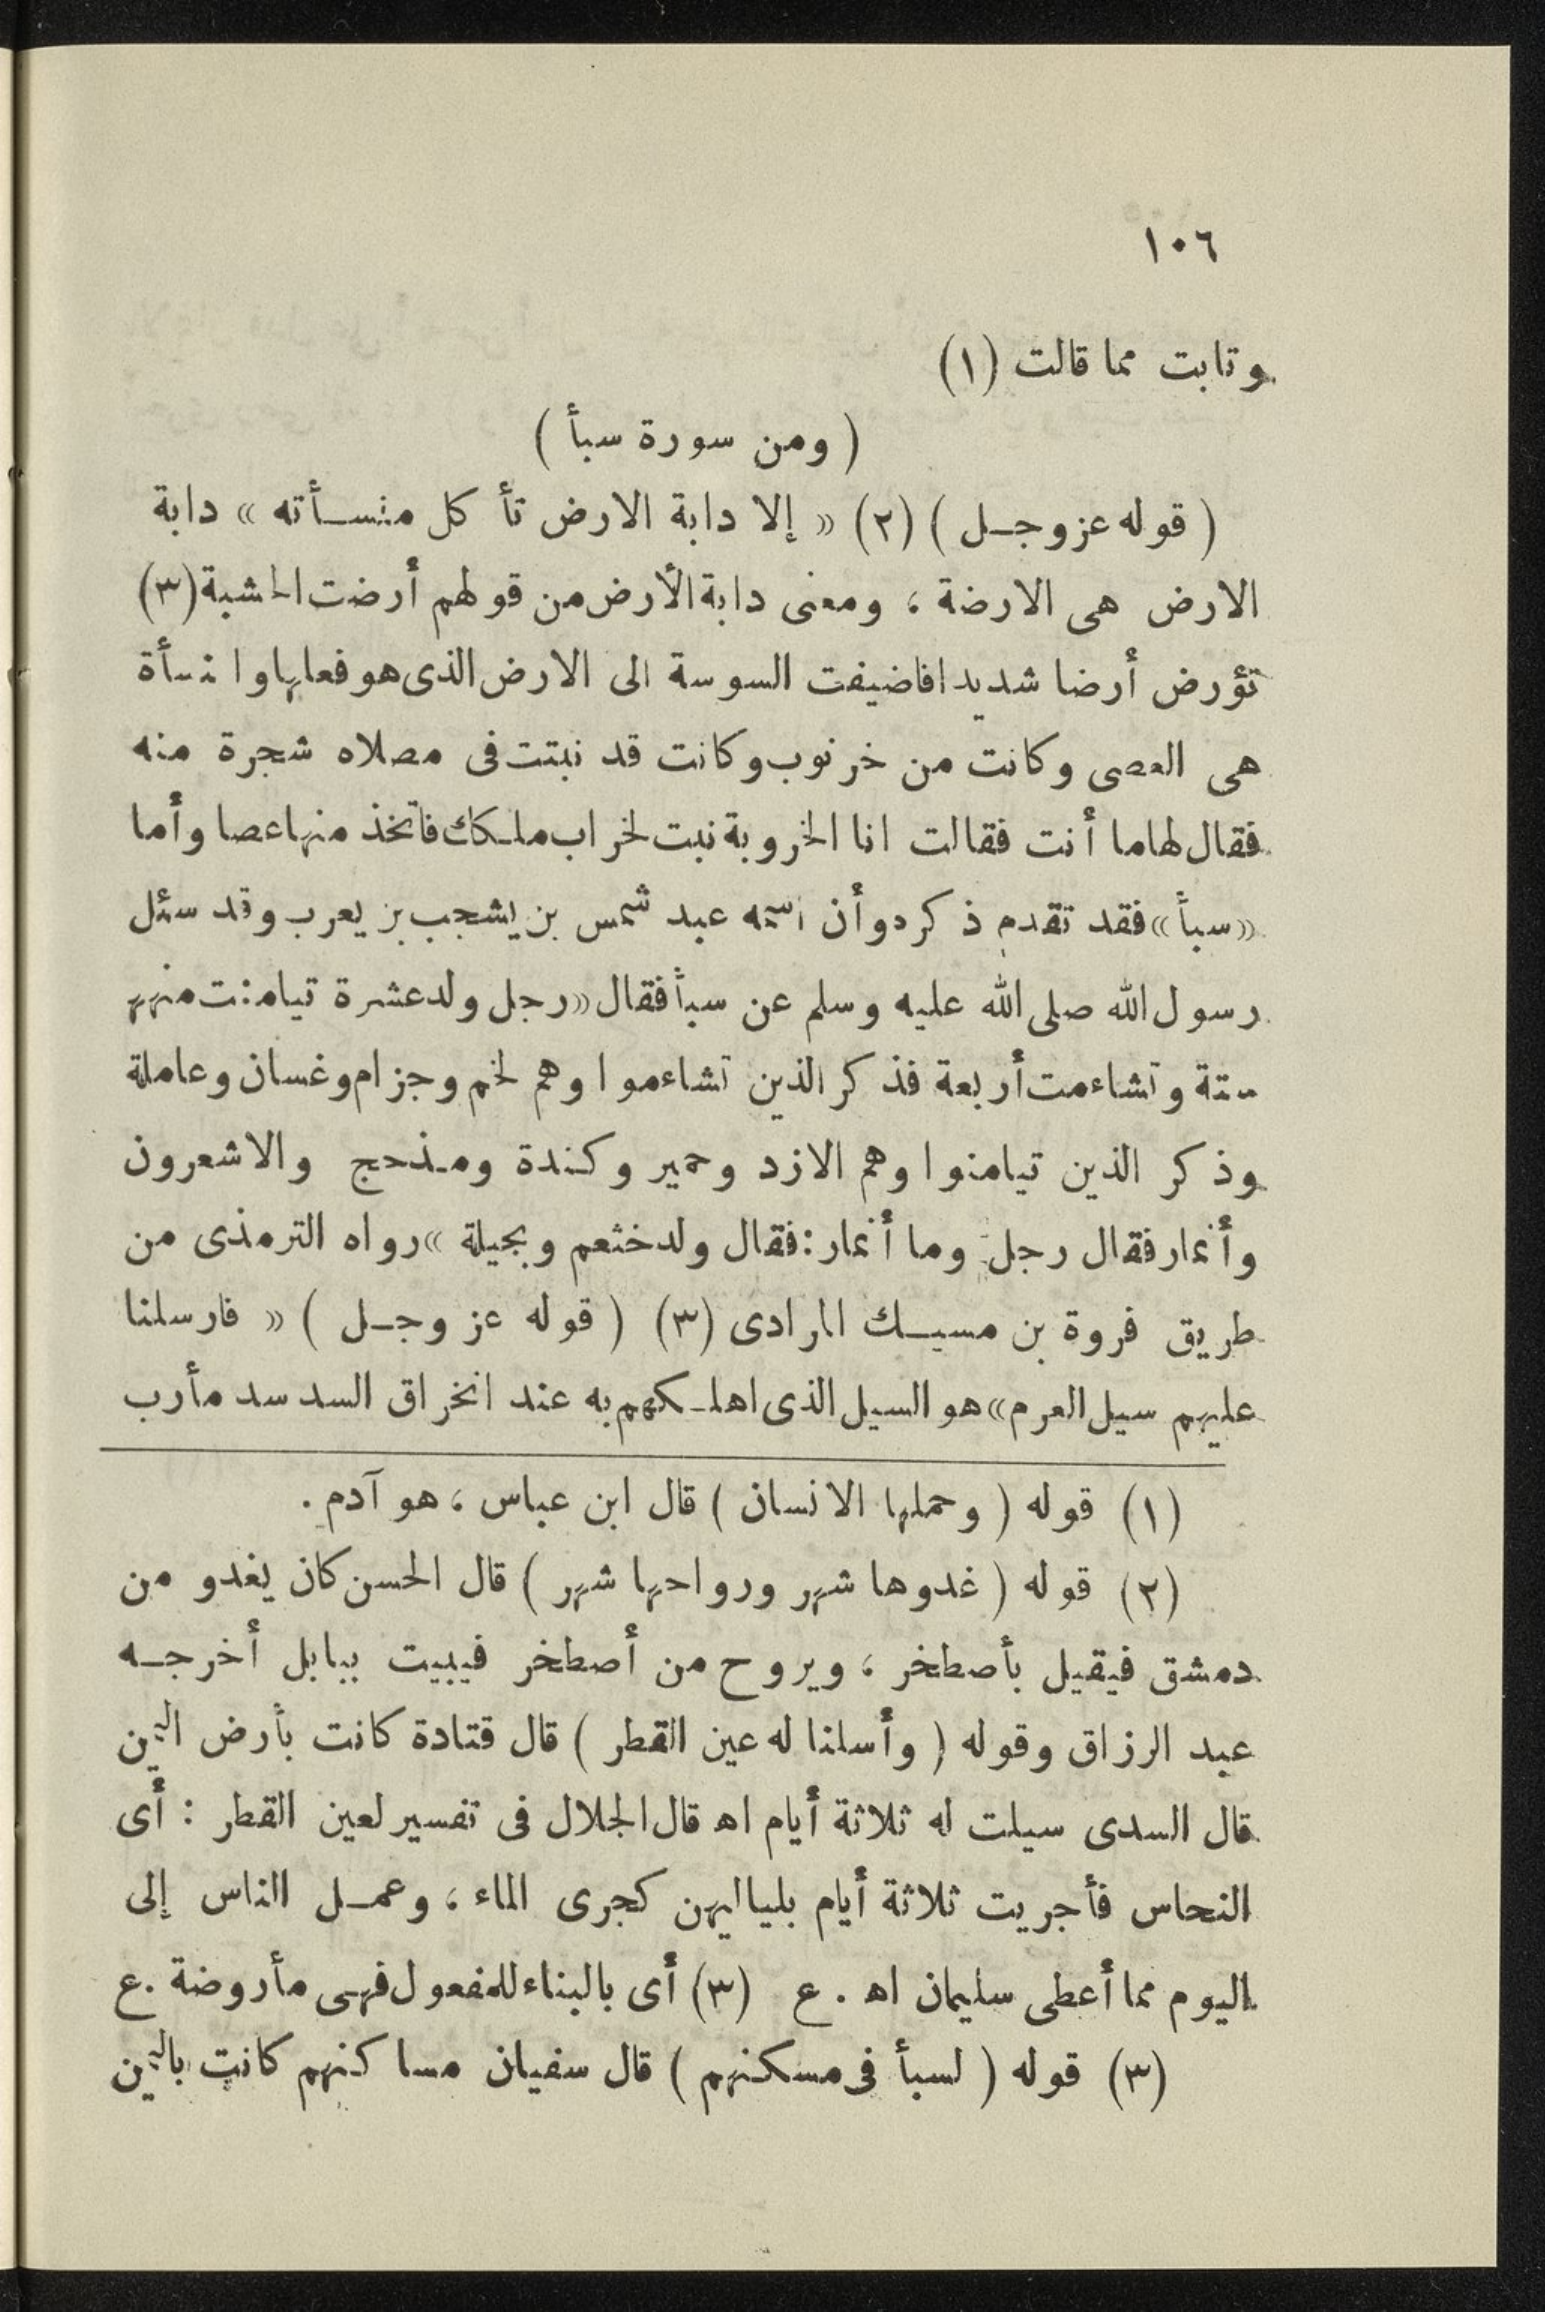 ١٠٦
وتابت مما قالت (١)
( ومن سورة سبأ )
( قوله عز وجل ) (٢) « إلا دابة الارض تأكل منسأته » دابة
الارض هى الارضة ، ومعنى دابة الأرض من قولهم أرضت الخشبة (٣)
تؤرض أرضا شديدا فاضيفت السوسة الى الارض الذى هو فعلها والمنسأة
هى العصى وكانت من خرنوب وكانت قد نبتت فى مصلاه شجرة منه
فقال لها ما أنت فقالت انا الخروبة نبت لخراب ملكك فاتخذ منها عصا وأما
« سبأ » فقد تقدم ذكره وأن اسمه عبد شمس بن يشجب بن يعرب وقد سئل
رسول الله صلى الله عليه وسلم عن سبأ فقال « رجل ولد عشرة تيامنت منهم
ستة وتشاءمت أربعة فذكر الذين تشاءموا وهم لخم وجزام وغسان وعاملة
وذكر الذين تيامنوا وهم الازد وحمير وكندة ومذحج والاشعرون
وأنمار فقال رجل وما أنمار : فقال ولد خثعم وبجيلة » رواه الترمذى من
طريق فروة بن مسيك المرادى (٣) ( قوله عز وجل ) « فارسلنا
عليهم سيل العرم » هو السيل الذى اهلكهم به عند انخراق السد سد مأرب
(١) قوله ( وحملها الانسان ) قال ابن عباس ، هو آدم .
(٢) قوله ( غدوها شهر ورواحها شهر ) قال الحسن كان يغدو من
دمشق فيقيل بأصطخر ، ويروح من أصطخر فيبيت ببابل أخرجه
عبد الرزاق وقوله ( وأسلنا له عين القطر ) قال قتادة كانت بأرض اليمن
قال السدى سيلت له ثلاثة أيام اه قال الجلال فى تفسير لعين القطر : أى
النحاس فأجريت ثلاثة أيام بلياليهن كجرى الماء ، وعمل الناس إلى
اليوم مما أعطى سليمان اه . ع (٣) أى بالبناء للمفعول فهى مأروضة . ع
(٣) قوله ( لسبأ فى مسكنهم ) قال سفيان مساكنهم كانت باليمن